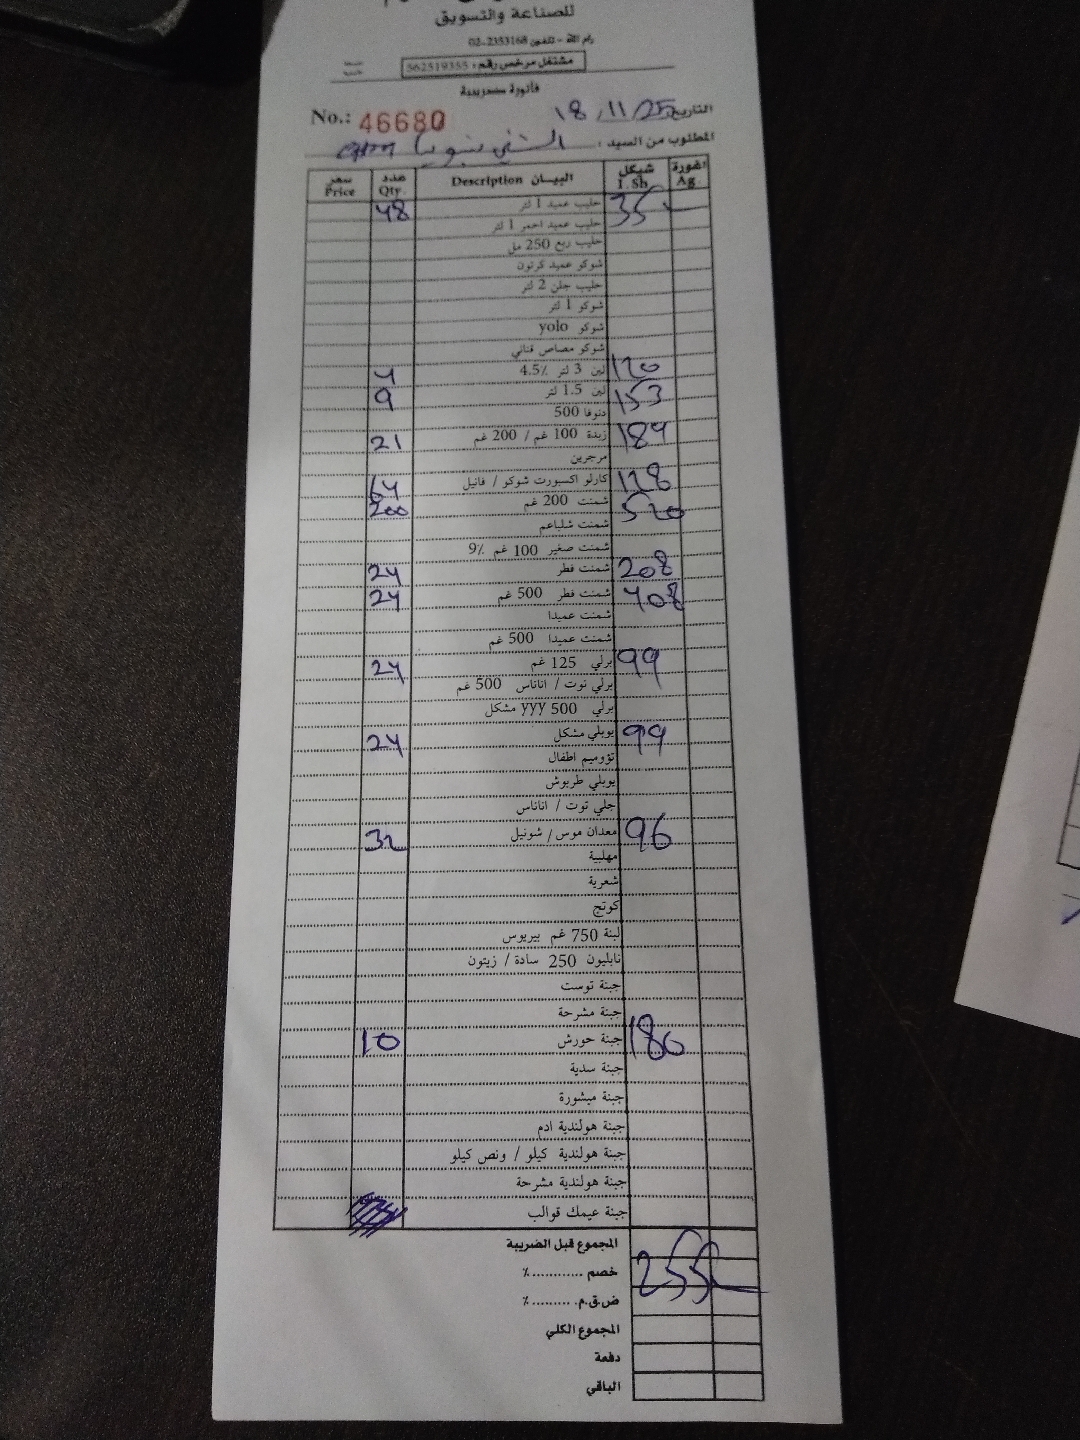 للصناعة والتسويق
رام الله - تلفون 2353168-02
مشتغل مرخص رقم: 562519355
فاتورة ضريبية
No.: 46680
التاريخ 18/11/25
المطلوب من السيد:
سعر Price عدد Qty. البيــان Description شيكل I. Sh اغورة Ag
48 حليب عميد 1 لتر
حليب عميد احمر 1 لتر
حليب ربع 250 مل
شوكو عميد كرتون
حليب جلن 2 لتر
شوكو 1 لتر
شوكو yolo
شوكو مصاص قناني
4 لبن 3 لتر 4.5٪ 120
9 لبن 1.5 لتر 153
دنوفا 500
21 زبدة 100 غم / 200 غم 189
مرجرين
64 كارلو اكسبورت شوكو / فانيل 128
200 شمنت 200 غم 520
شمنت شلباعم
شمنت صغير 100 غم 9٪
24 شمنت فطر 208
24 شمنت فطر 500 غم 408
شمنت عميدا
شمنت عميدا 500 غم
24 برلي 125 غم 99
برلي توت / اناناس 500 غم
برلي 500 yyy مشكل
24 يوبلي مشكل 99
تؤوميم اطفال
يوبلي طربوش
جلي توت / اناناس
32 معدان موس / شونيل 96
مهلبية
شعرية
كوتج
لبنة 750 غم بيريوس
نابليون 250 سادة / زيتون
جبنة توست
جبنة مشرحة
10 جبنة حورش 180
جبنة سدية
جبنة مبشورة
جبنة هولندية ادم
جبنة هولندية كيلو / ونص كيلو
جبنة هولندية مشرحة
جبنة عيمك قوالب
المجموع قبل الضريبة
خصم ............ ٪
ض.ق.م. ......... ٪
المجموع الكلي
دفعة
الباقي